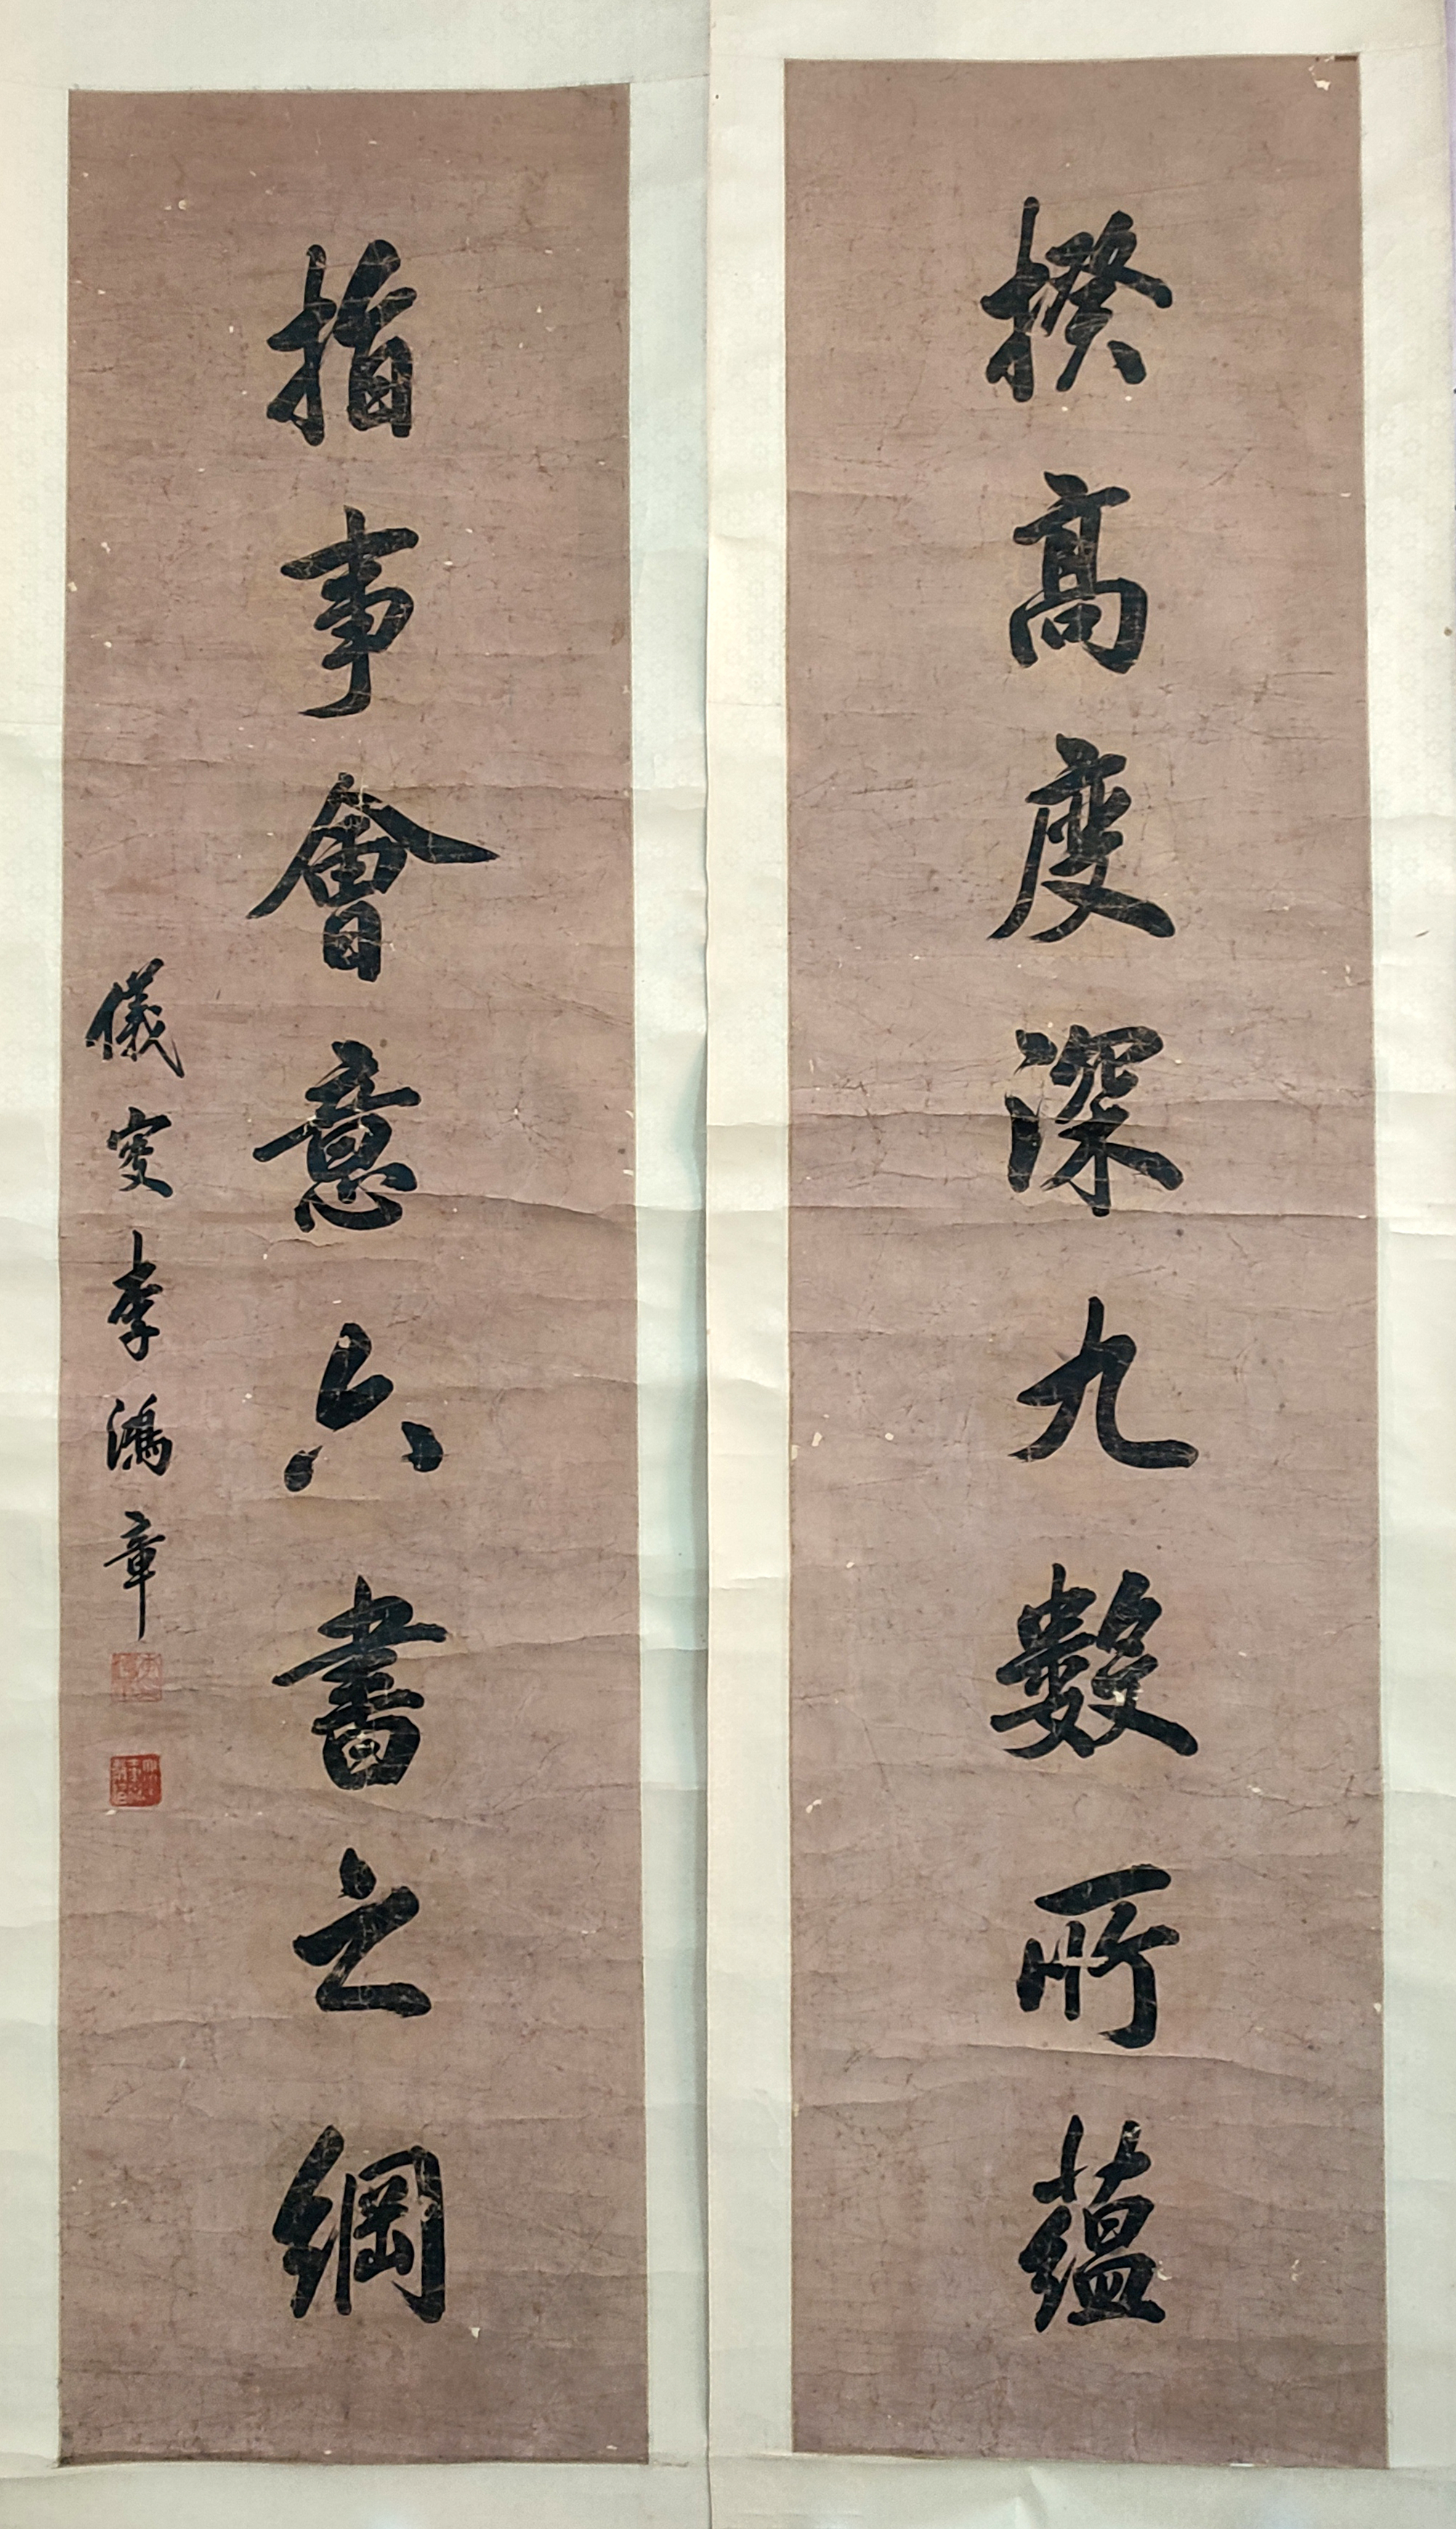 揆高度深九數所蘊
指事會意六書之綱
儀叟李鴻章